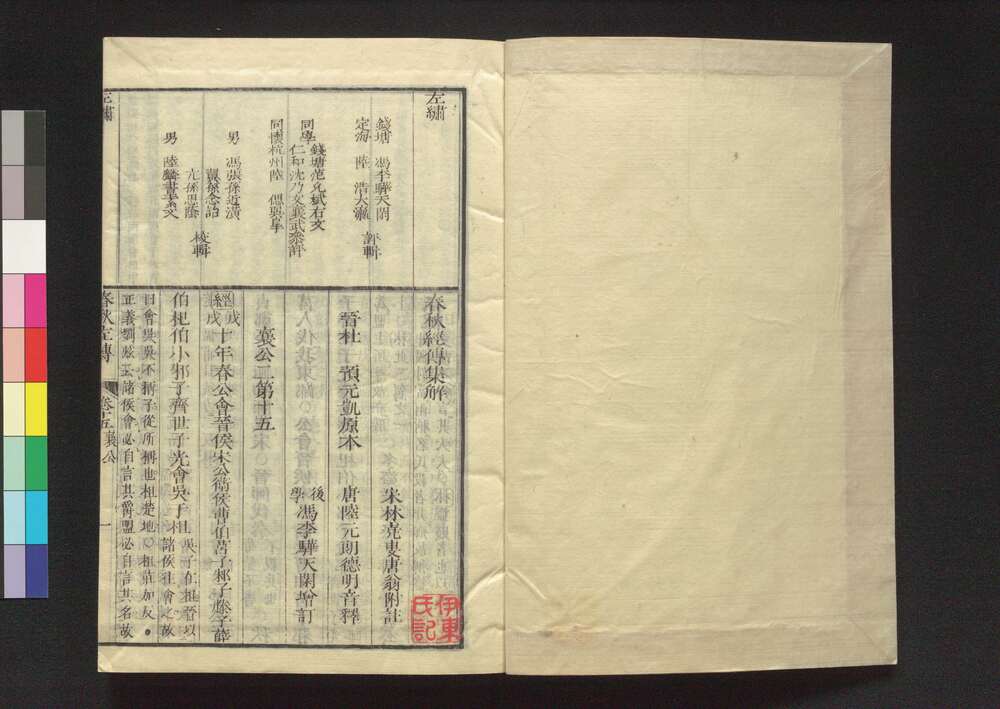 左繡
錢塘 馮李驊天閑
定海 陸 浩大瀛 評輯
同學 錢塘范允斌右文
仁和沈乃文襄武叅評
同懷杭州陸 偲巽皐
男 馮張孫近潢
翼孫念詒
男 陸麟書素文 校輯
左繡
春秋經傳集解
宋林堯叟唐翁附註
晉杜 預元凱原本
唐陸元朗德明音釋
後學馮李驊天閑增訂
襄公二第十五
經戊戌十年春公會晉侯宋公衛侯曹伯莒子邾子滕子薛
伯杞伯小邾子齊世子光會吳于柤 吳子在柤晉以諸侯往會之故
曰會吳吳不稱子從所稱也柤楚地○柤莊加反。
正義劉炫云諸侯會必自言其爵盟必自言其名故
春秋左傳 卷十五 襄公 一
伊東氏記